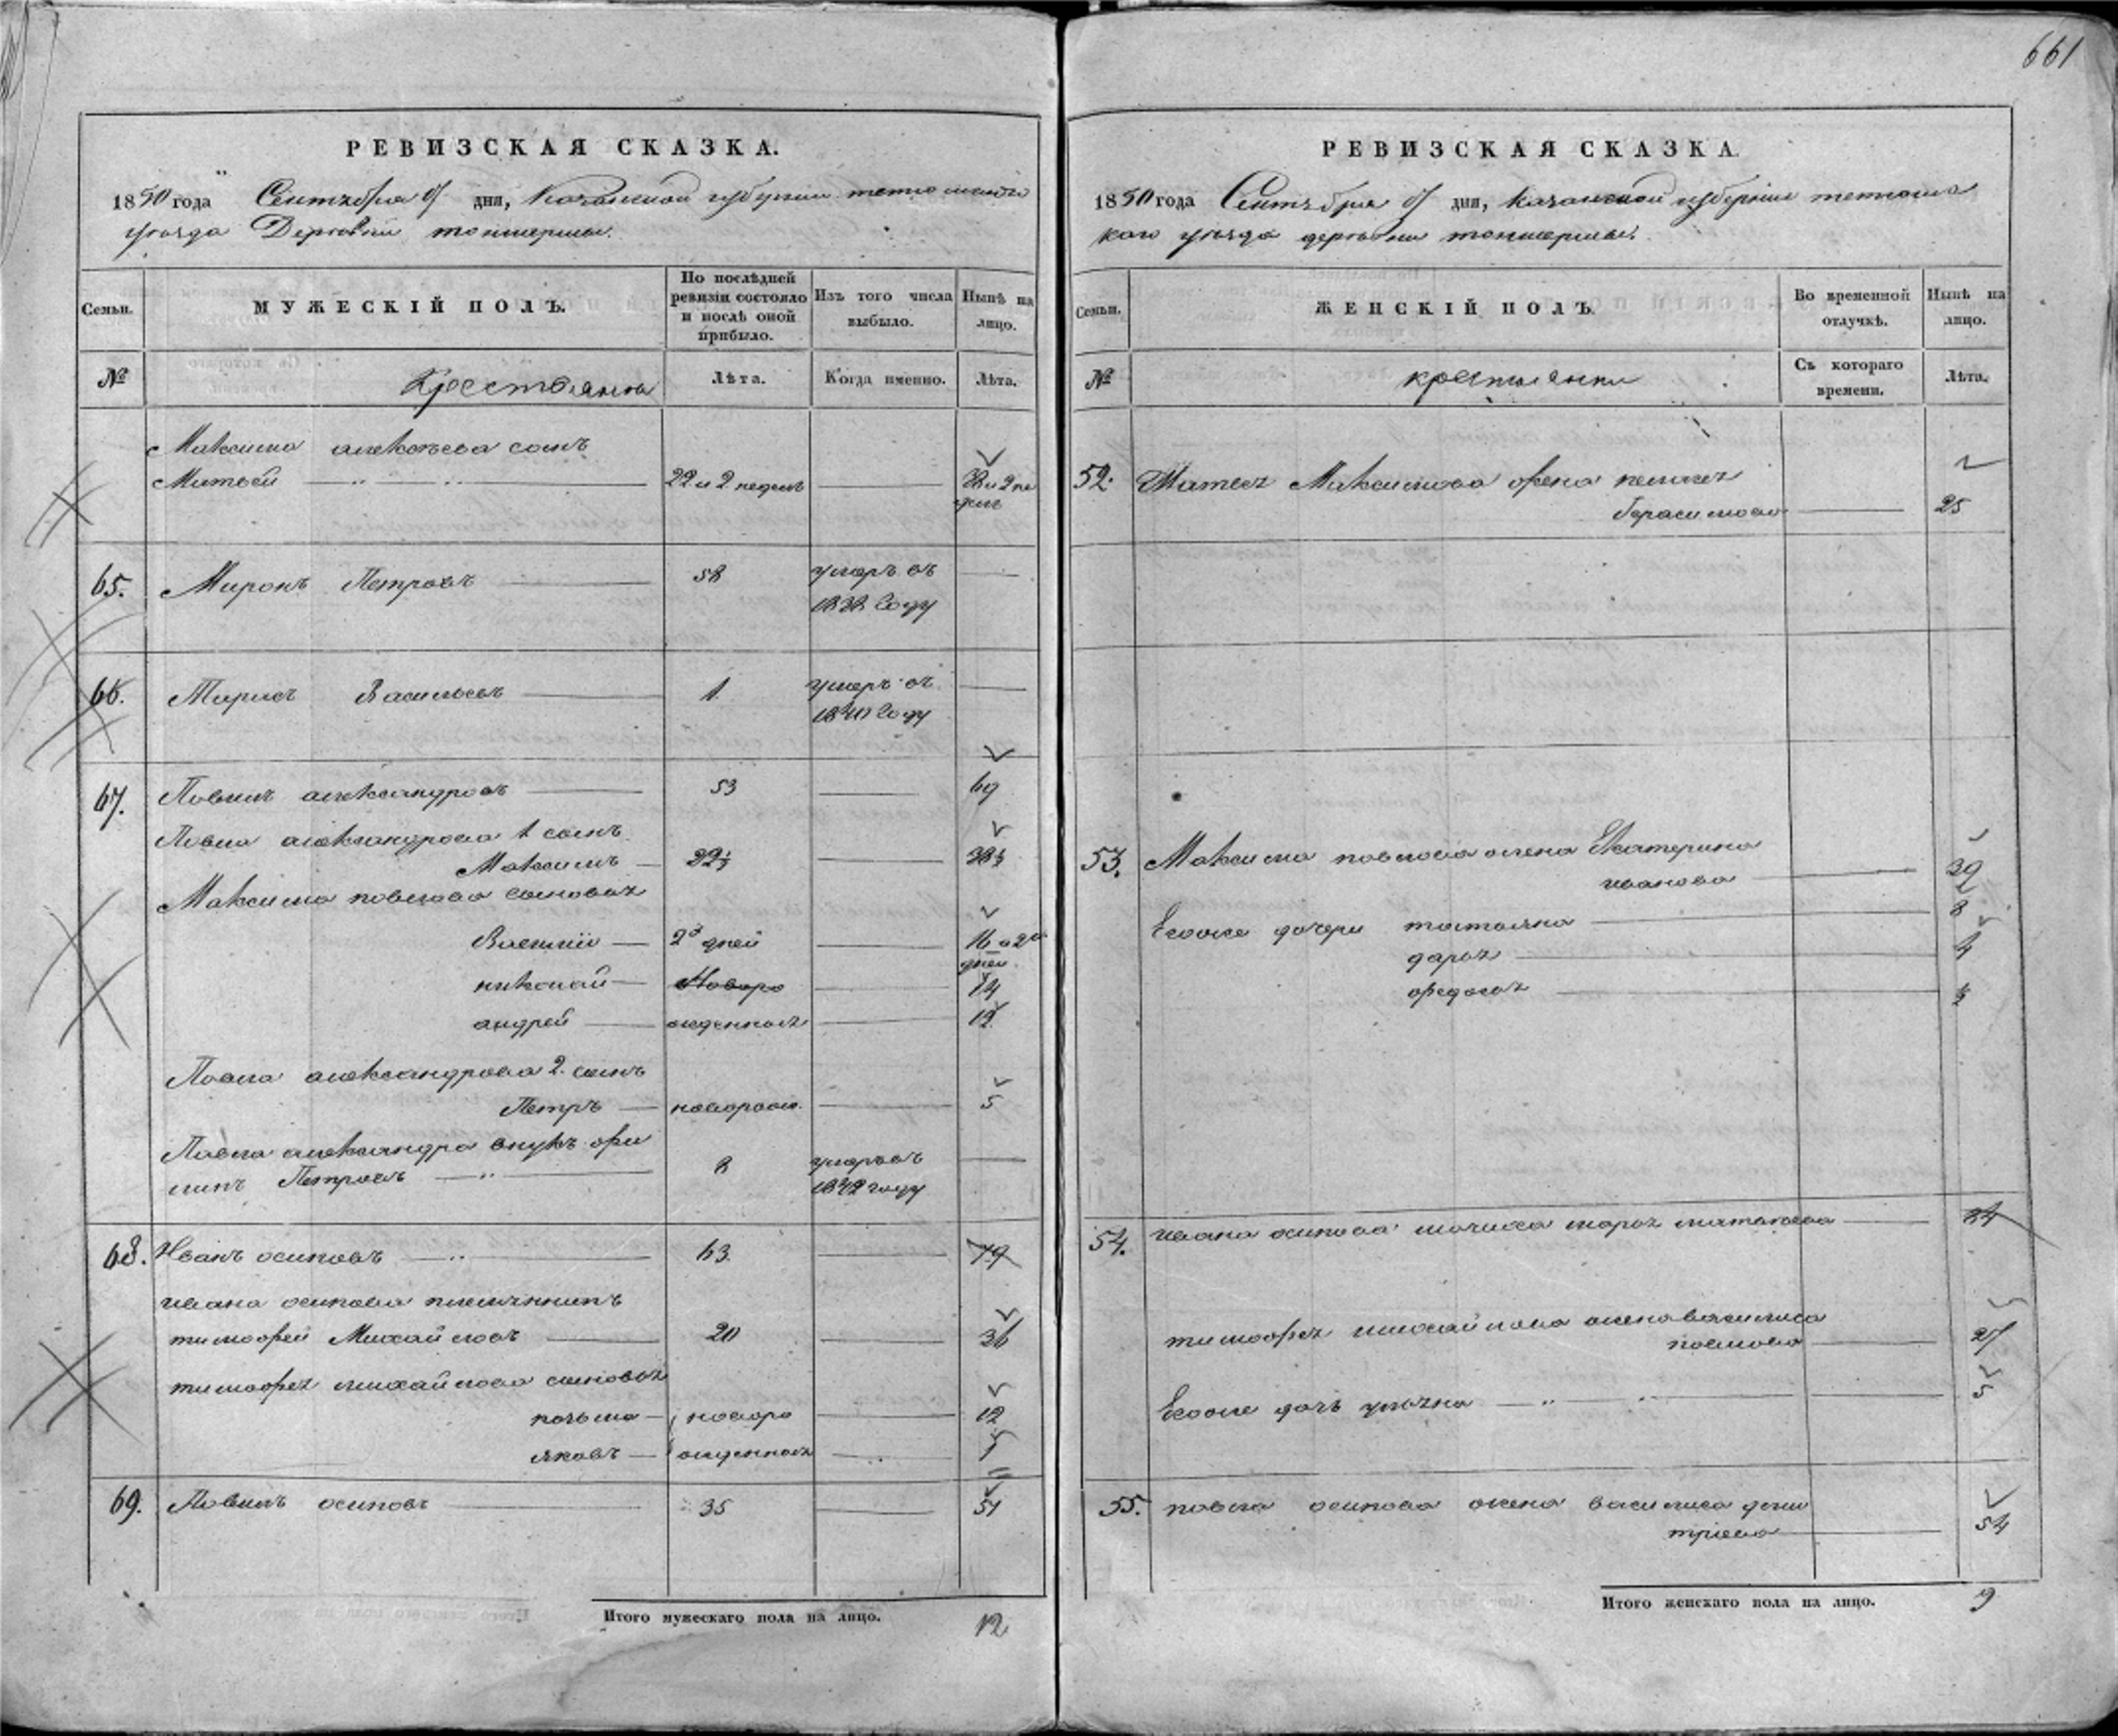 661
РЕВИЗСКАЯ СКАЗКА.
1850 года Сентября дня, Казанской губернии тетюшскаго
уезда Деревни
Семьи. МУЖЕСКІЙ ПОЛЪ. По послѣдней ревизіи состояло и послѣ оной прибыло. Изъ того числа выбыло. Нынѣ на лицо.
№ Крестьяна Лѣта. Когда именно. Лѣта.
Максима алексѣева сынъ
Матвей 22 и 2 недель
дель
65. Миронъ Петровъ 58 умеръ въ
1838 году
66. Васильевъ 1 умеръ въ
1840 году
67. Павилъ александровъ 53 69
Павла александрова 1 сынъ
Максимъ 22½ 38½
Максима павлова сыновья
Василий 2 дней 16 и 2
дней
николай Новоро 14
андрей жденныя 12
Павла александрова 2. сынъ
Петръ новорож. 5
Павла александра внукъ фи
липъ Петровъ 8 умеръ въ
1842 году
68. Иванъ осиповъ 63 79
ивана осипова племянникъ
тимофей Михайловъ 20 36
тимофея михайлова сыновья
новоро 12
яковъ жденныя
69. Павилъ осиповъ 35 51
Итого мужескаго пола на лицо. 12
РЕВИЗСКАЯ СКАЗКА.
1850 года Сентября дня, казанской губернии тетюшс
каго уезда деревни
Семьи. ЖЕНСКІЙ ПОЛЪ. Во временной отлучкѣ. Нынѣ на лицо.
№ крестьянки Съ котораго времени. Лѣта.
52. Максимова жена
Герасимова 25
53. Максима павлова жена Екатерина
иванова 39
Еговые дочери татьяна 8
дарья 4
федосья ½
54. ивана осипова марья матвеева 84
тимофея михайлова жена василиса
павлова 27
Еговые дочь 5
55. павла осипова жена василиса дми
триева 54
Итого женскаго пола на лицо. 9